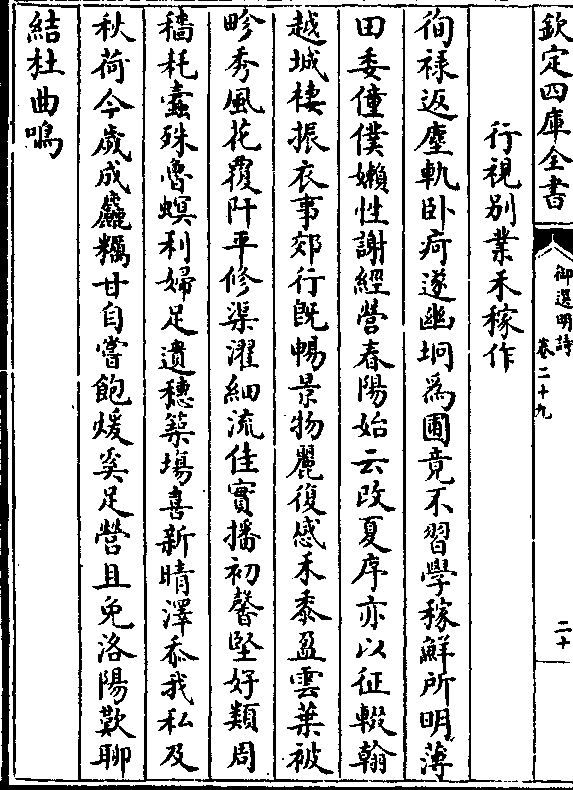 欽定四庫全書
御選明詩
卷二十九
二十
行視别業禾稼作
徇禄返塵軌卧疴遂幽坰爲圃竟不習學稼鮮所明薄
田委僮僕嬾性謝經營春陽始云改夏序亦以征輟翰
越城棲振衣事郊行既暢景物麗復感禾黍盈雲葉被
畛秀風花覆阡平修渠濯細流佳實播初馨堅好類周
穡耗蠹殊魯螟利婦足遺穗築塲喜新晴澤忝我私及
秋荷今歲成麤糲甘自嘗飽煖奚足營且免洛陽歎聊
結杜曲鳴